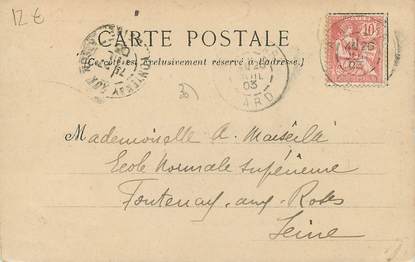 12 €
CARTE POSTALE
(Ce côté est exclusivement réservé à l'adresse.)
10
03
ARD
Mademoiselle A. Marseille
Ecole Normale Supérieure
Fontenay-aux-Roses
Seine